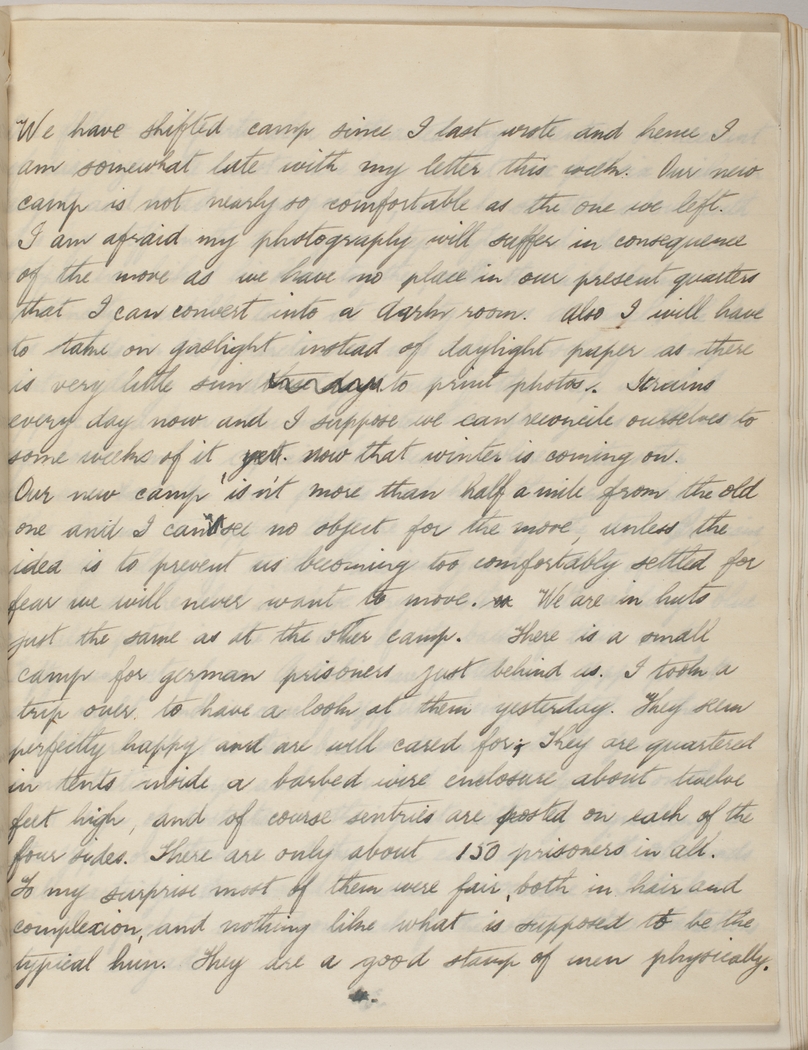 We have shifted camp since I last wrote and hence I
am somewhat late with my letter this week. Our new
camp is not nearly so comfortable as the one we left.
I am afraid my photography will suffer in consequence
of the move as we have no place in our present quarters
that I can convert into a dark room. Also I will have
to take on gaslight instead of daylight paper as there
is very little sun to print photos. It rains
every day now and I suppose we can reconcile ourselves to
some weeks of it yet. now that winter is coming on.
Our new camp is n't more than half a mile from the old
one and I can see no object for the move, unless the
idea is to prevent us becoming too comfortably settled for
fear we will never want to move. We are in huts
just the same as at the other camp. There is a small
camp for german prisoners just behind us. I took a
trip over to have a look at them yesterday. They seem
perfectly happy and are well cared for; They are quartered
in tents inside a barbed wire enclosure about twelve
feet high, and of course sentries are posted on each of the
four sides. There are only about 150 prisoners in all.
To my surprise most of them were fair, both in hair and
complexion, and nothing like what is supposed to be the
typical hun. They are a good stamp of men physically.